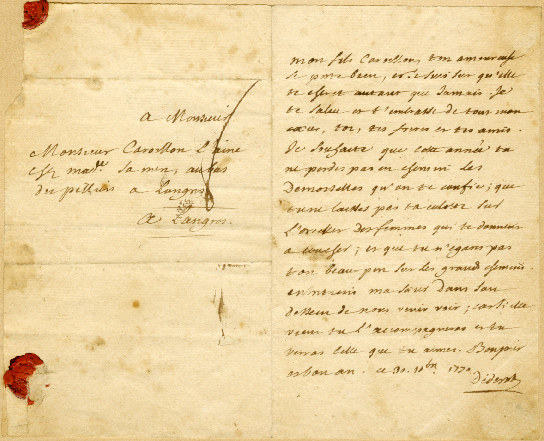 a Monsieur
Monsieur Caroillon l'ainé
chez mad.e sa mere, au bas
des pilliers a Langres
a Langres.
mon fils Caroillon, ton amoureuse
se porte bien, et je suis sur qu'elle
te cherit autant que jamais. Je
te salue et t'embrasse de tout mon
cœur, toi, tes freres et tes amis.
Je souhaite que cette année tu
ne perdes pas en chemin les
Demoiselles qu'on te confie; que
tu ne laisses pas ta culote sur
l'oreiller des femmes qui te donnent
a coucher; et que tu n'egares pas
ton beau sur les grands chemins.
entretiens ma sœur dans son
dessein de nous venir voir; car si elle
vient tu l'accompagneras et tu
verras celle que tu aimes. Bonjour
et bon an. ce 30. 10bre 1770
Diderot